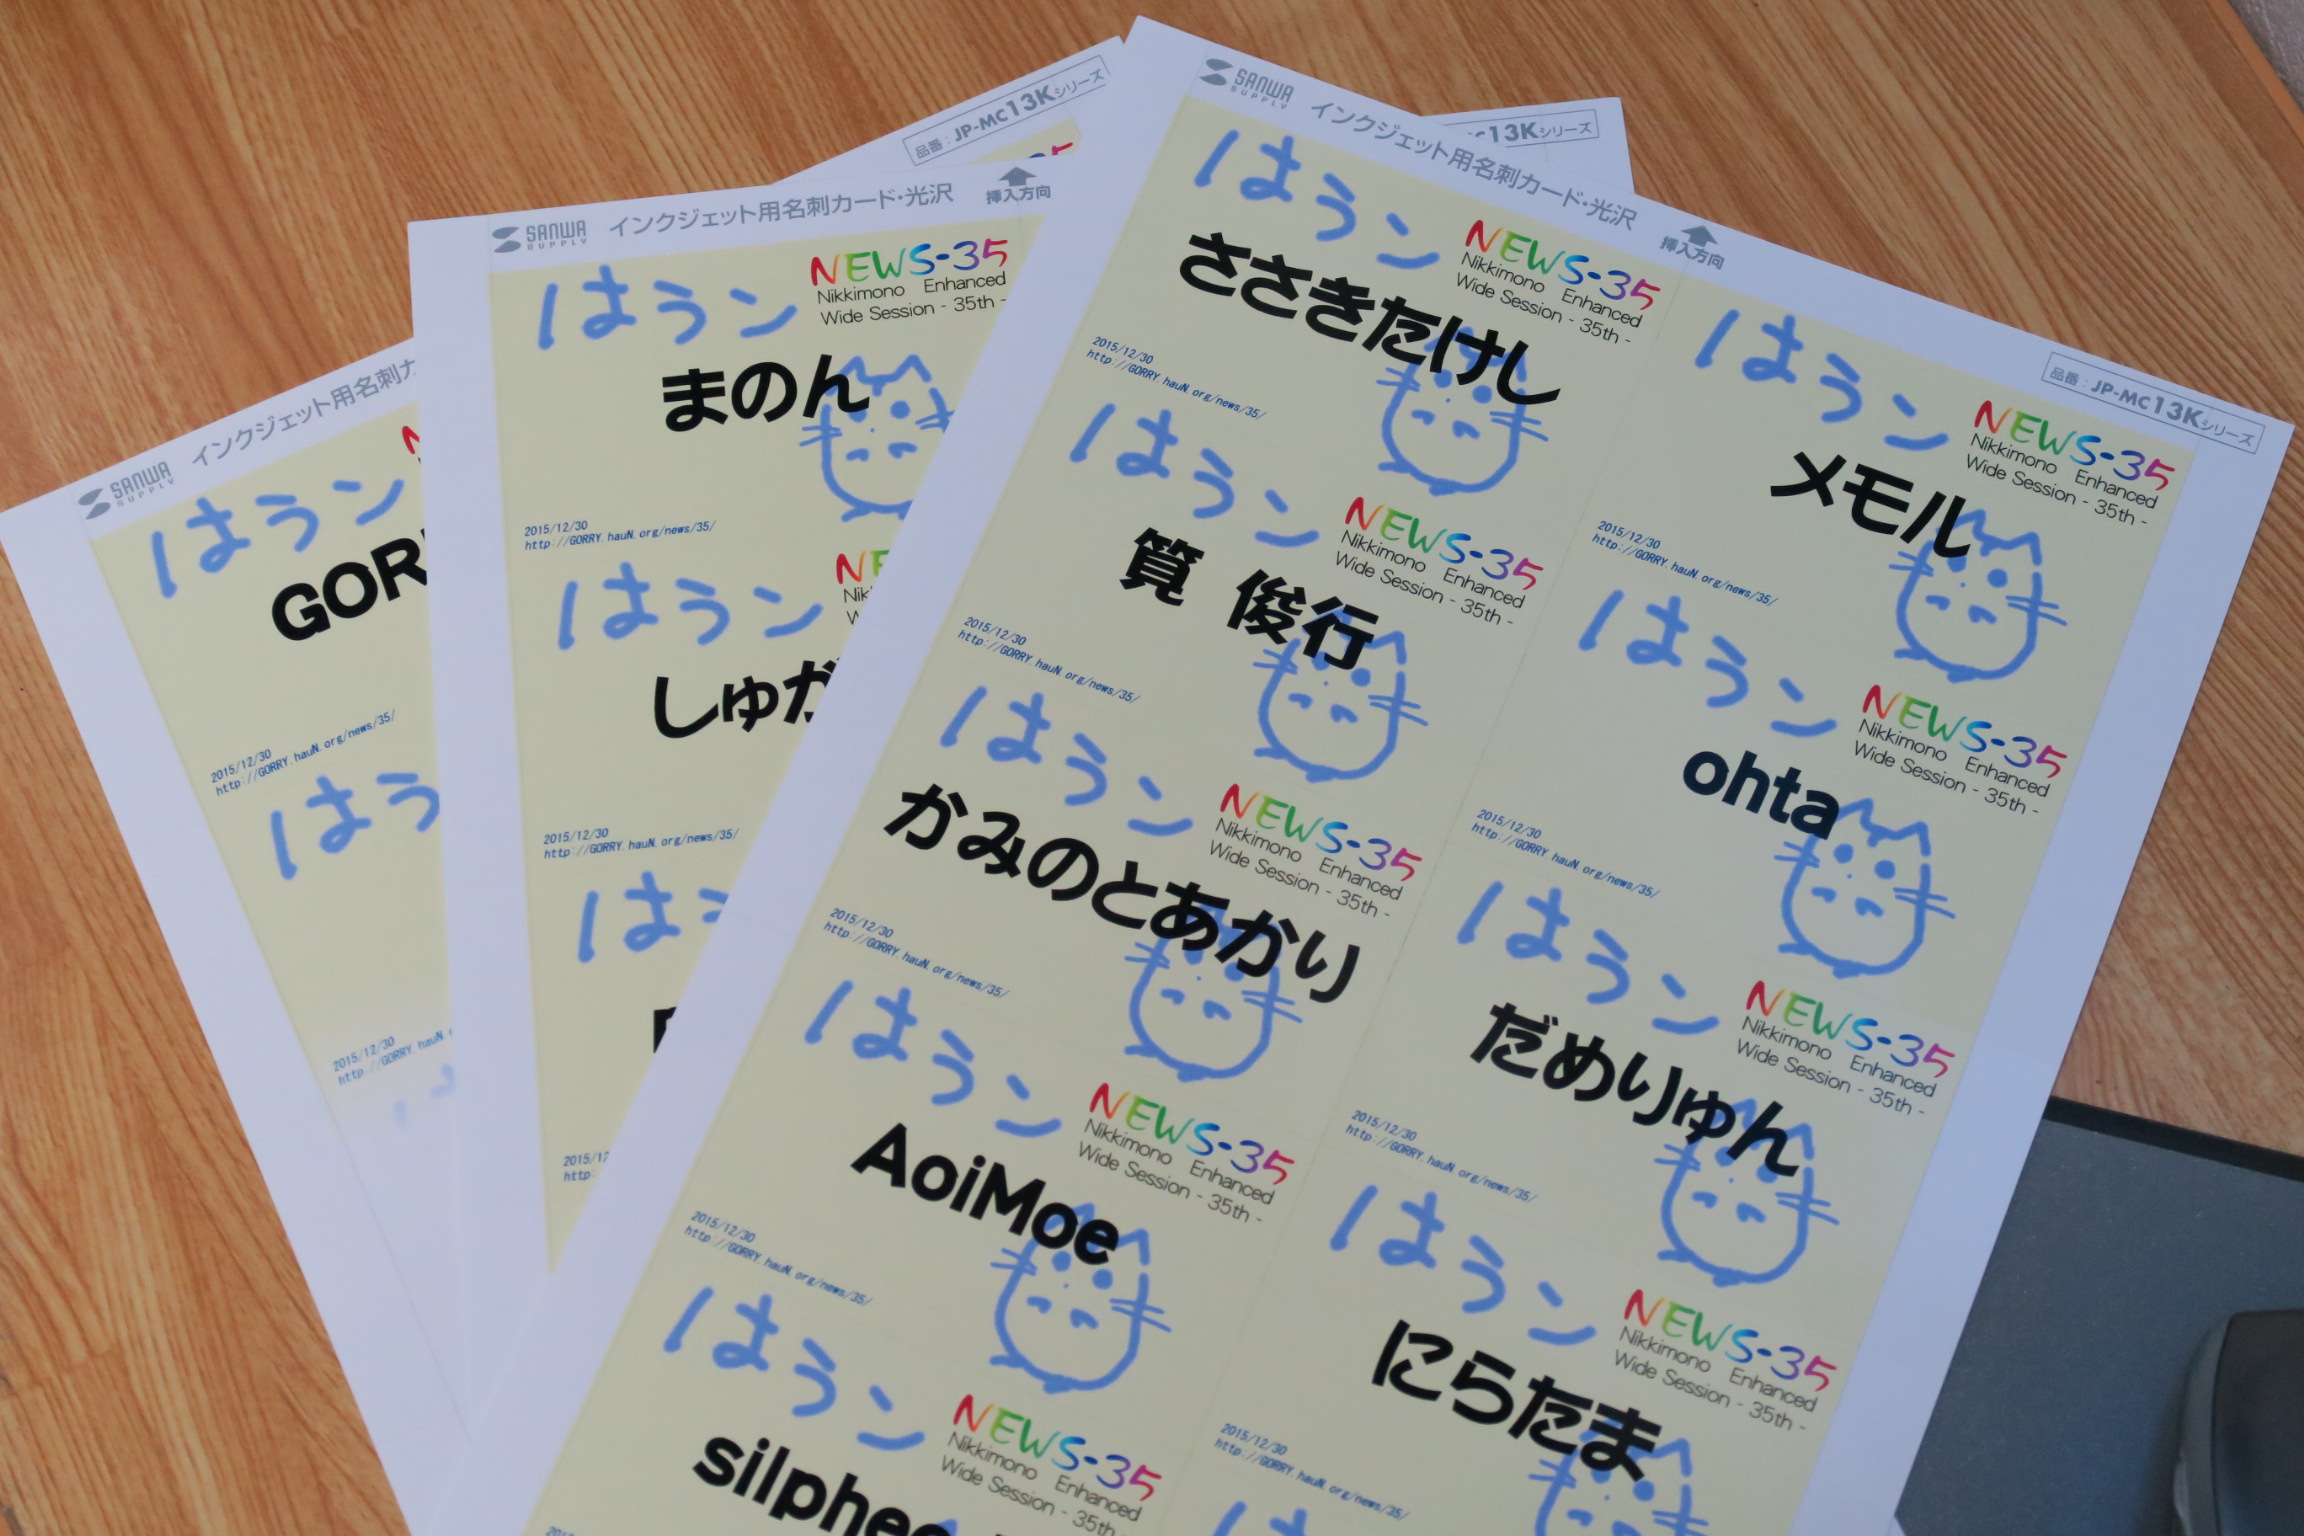 SANWA
SUPPLY
インクジェット用名刺カ
はうン
GOR
2015/12/30
http://GORRY.hauN.org/news/35/
はう
2015/12/30
http://GORRY.hauN.o
品番：JP-MC13Kシリーズ
35
SANWA
SUPPLY
インクジェット用名刺カード・光沢
挿入方向
はうン
NEWS-35
Nikkimono Enhanced
Wide Session - 35th -
まのん
2015/12/30
http://GORRY.hauN.org/news/35/
はうン
NE
Nik
W
しゅか
2015/12/30
http://GORRY.hauN.org/news/35/
はう
2015/12
http:
13Kシリーズ
SANWA
SUPPLY
インクジェット用名刺カード・光沢
挿入方向
品番：JP-MC13Kシリーズ
はうン
NEWS-35
Nikkimono Enhanced
Wide Session - 35th -
ささきたけし
2015/12/30
http://GORRY.hauN.org/news/35/
はうン
NEWS-35
Nikkimono Enhanced
Wide Session - 35th -
メモル
2015/12/30
http://GORRY.hauN.org/news/35/
はうン
NEWS-35
Nikkimono Enhanced
Wide Session - 35th -
筧 俊行
2015/12/30
http://GORRY.hauN.org/news/35/
はうン
NEWS-35
Nikkimono Enhanced
Wide Session - 35th -
ohta
2015/12/30
http://GORRY.hauN.org/news/35/
はうン
NEWS-35
Nikkimono Enhanced
Wide Session - 35th -
かみのとあかり
2015/12/30
http://GORRY.hauN.org/news/35/
はうン
NEWS-35
Nikkimono Enhanced
Wide Session - 35th -
だめりゅん
2015/12/30
http://GORRY.hauN.org/news/35/
はうン
NEWS-35
Nikkimono Enhanced
Wide Session - 35th -
AoiMoe
2015/12/30
http://GORRY.hauN.org/news/35/
はうン
NEWS-35
Nikkimono Enhanced
Wide Session - 35th -
にらたま
2015/12/30
http://GORRY.hauN.org/news/35/
はうン
NEWS-35
Nikkimono Enhanced
Wide Session - 35th -
silphe